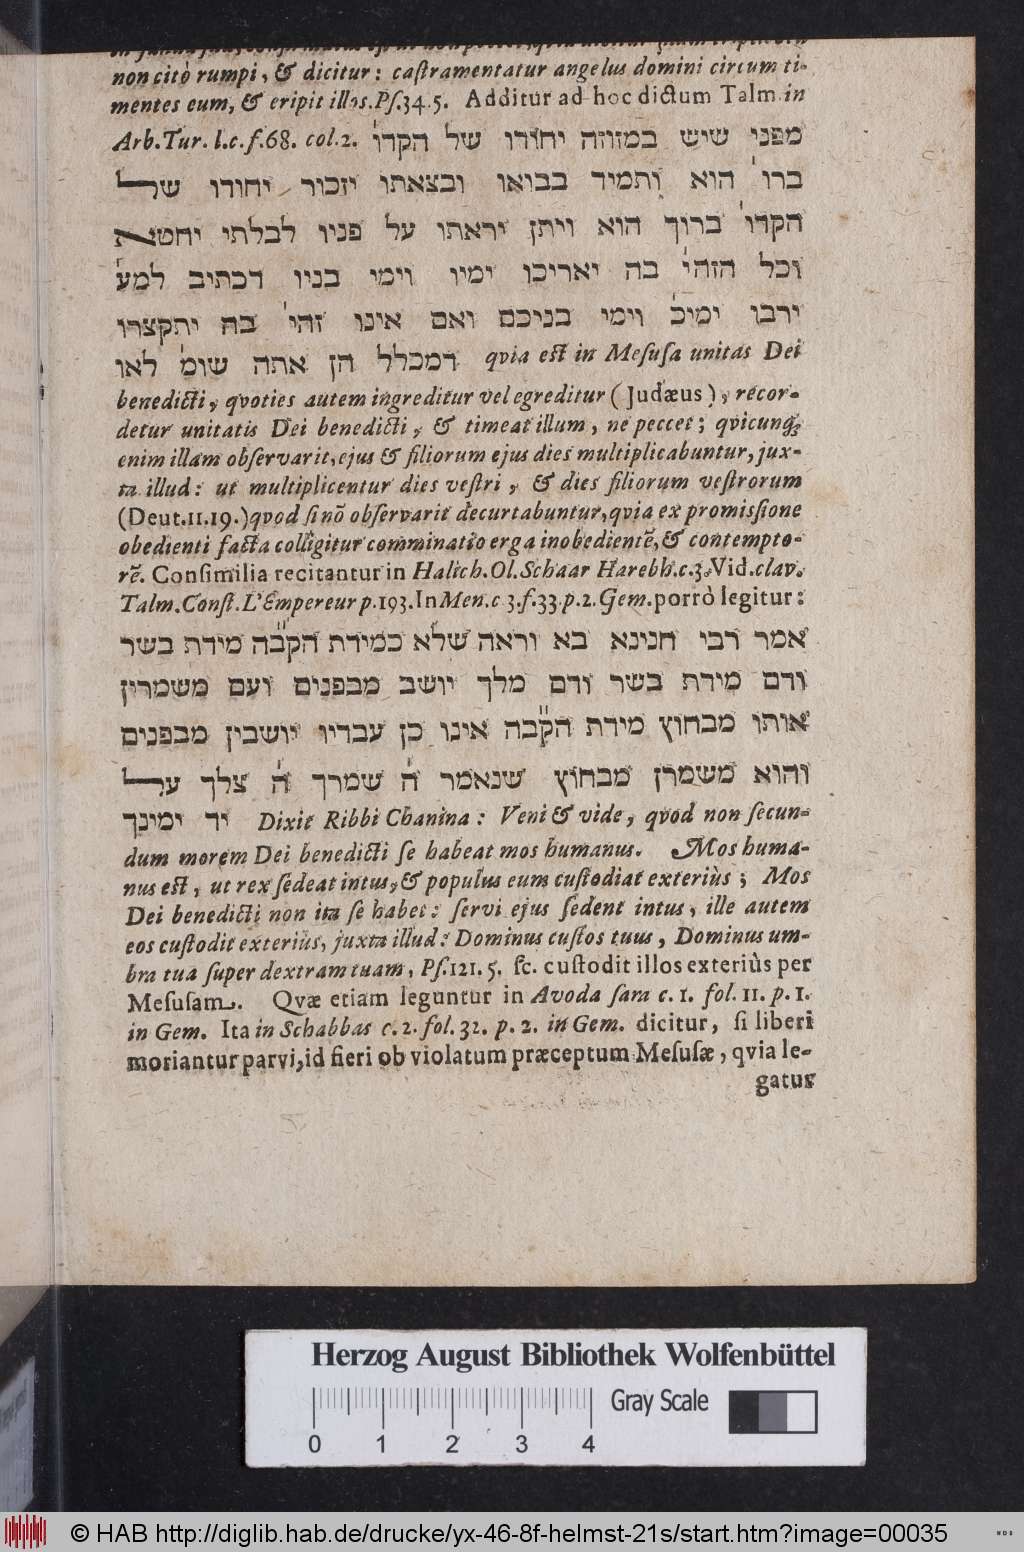 non citò rumpi, & dicitur: caſtramentatur angelus domini circum ti-
mentes eum, & eripit illos. Pſ. 34. 5. Additur ad hoc dictum Talm. in
Arb. Tur. l. c. f. 68. col. 2. מפני שיש במזוזה יחודו של הקדו׳
ברו׳ הוא ותמיד בבואו ובצאתו יזכור יחודו של
הקדו׳ ברוך הוא ויתן יראתו על פניו לבלתי יחטא
וכל הזהי׳ בה יאריכו ימיו וימי בניו דכתיב למע׳
ירבו ימיכ׳ וימי בניכם ואם אינו זהי׳ בה יתקצרו
דמכלל הן אתה שומ׳ לאו qvia est in Meſuſa unitas Dei
benedicti, qvoties autem ingreditur vel egreditur (Judæus), recor-
detur unitatis Dei benedicti, & timeat illum, ne peccet; qvicunq;
enim illam obſervarit, ejus & filiorum ejus dies multiplicabuntur, jux-
ta illud: ut multiplicentur dies veſtri, & dies filiorum veſtrorum
(Deut. 11. 19.) qvod ſi nõ obſervarit decurtabuntur, qvia ex promiſſione
obedienti facta colligitur comminatio erga inobedientẽ, & contempto-
rẽ. Conſimilia recitantur in Halich. Ol. Schaar Harebh. c. 3. Vid. clav.
Talm. Conſt. L'Empereur p. 193. In Men. c 3. f. 33. p. 2. Gem. porrò legitur:
אמר רבי חנינא בא וראה שלא כמידת הק״בה מידת בשר
ודם מידת בשר ודם מלך יושב מבפנים ועם משמרין
אותו מבחוץ מידת הק״בה אינו כן עבדיו יושבין מבפנים
והוא משמרן מבחוץ שנאמר ה׳ שמרך ה׳ צלך על
יד ימינך Dixit Ribbi Chanina: Veni & vide, qvod non ſecun-
dum morem Dei benedicti ſe habeat mos humanus. Mos huma-
nus est, ut rex ſedeat intus, & populus eum cuſtodiat exteriùs; Mos
Dei benedicti non ita ſe habet: ſervi ejus ſedent intus, ille autem
eos cuſtodit exteriùs, juxta illud: Dominus cuſtos tuus, Dominus um-
bra tua ſuper dextram tuam, Pſ. 121. 5. ſc. cuſtodit illos exteriùs per
Meſuſam. Qvæ etiam leguntur in Avoda ſara c. 1. fol. 11. p. 1.
in Gem. Ita in Schabbas c. 2. fol. 32. p. 2. in Gem. dicitur, ſi liberi
moriantur parvi, id fieri ob violatum præceptum Meſuſæ, qvia le-
gatur
Herzog August Bibliothek Wolfenbüttel
Gray Scale
0 1 2 3 4
© HAB http://diglib.hab.de/drucke/yx-46-8f-helmst-21s/start.htm?image=00035